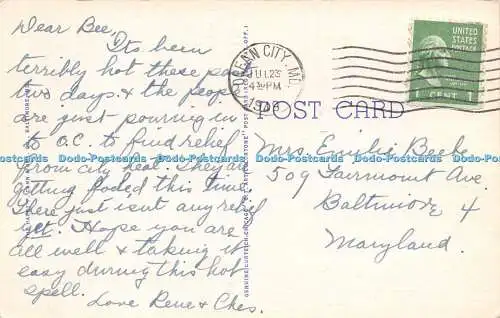 Dear Bee,
It's been
terribly hot these past
two days & the people
are just pouring in
to O.C. to find relief
from city heat. They are
getting fooled this time
There just isn't any relief
yet. Hope you are
all well & taking it
easy during this hot
spell.
Love Rene & Ches.
OCEAN CITY, MD.
JUL 23
4 30 PM
UNITED
STATES
POSTAGE
1 CENT 1
POST CARD
Mrs. Emilie Beeke
509 Fairmount Ave.
Baltimore 4
Maryland.
Dodo-Postcards.com Dodo-Postcards.com Dodo-Postcards.com Dodo-Postcards.com Dodo-Postcards.com